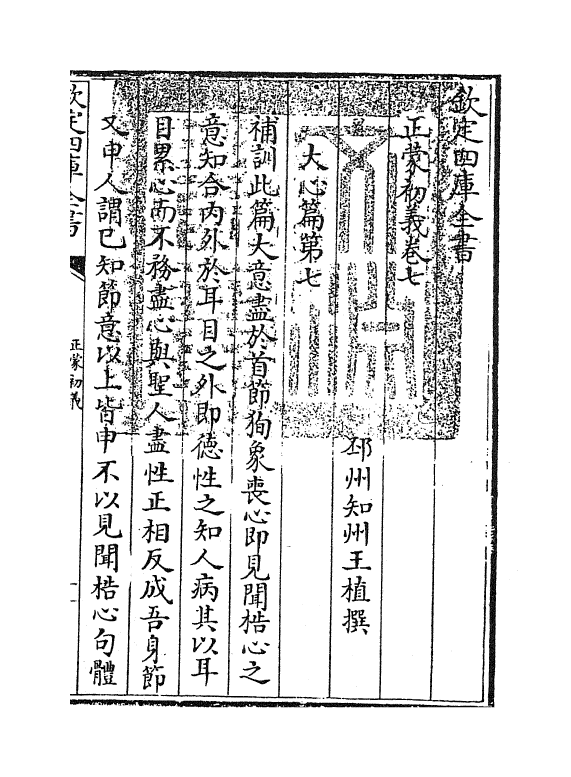 欽定四庫全書
正蒙初義卷七
邳州知州王植撰
大心篇第七
補訓此篇大意盡於首節狥象喪心即見聞梏心之
意知合内外於耳目之外即德性之知人病其以耳
目累心而不務盡心與聖人盡性正相反成吾身節
又申人謂己知節意以上皆申不以見聞梏心句體
欽定四庫全書
正蒙初義